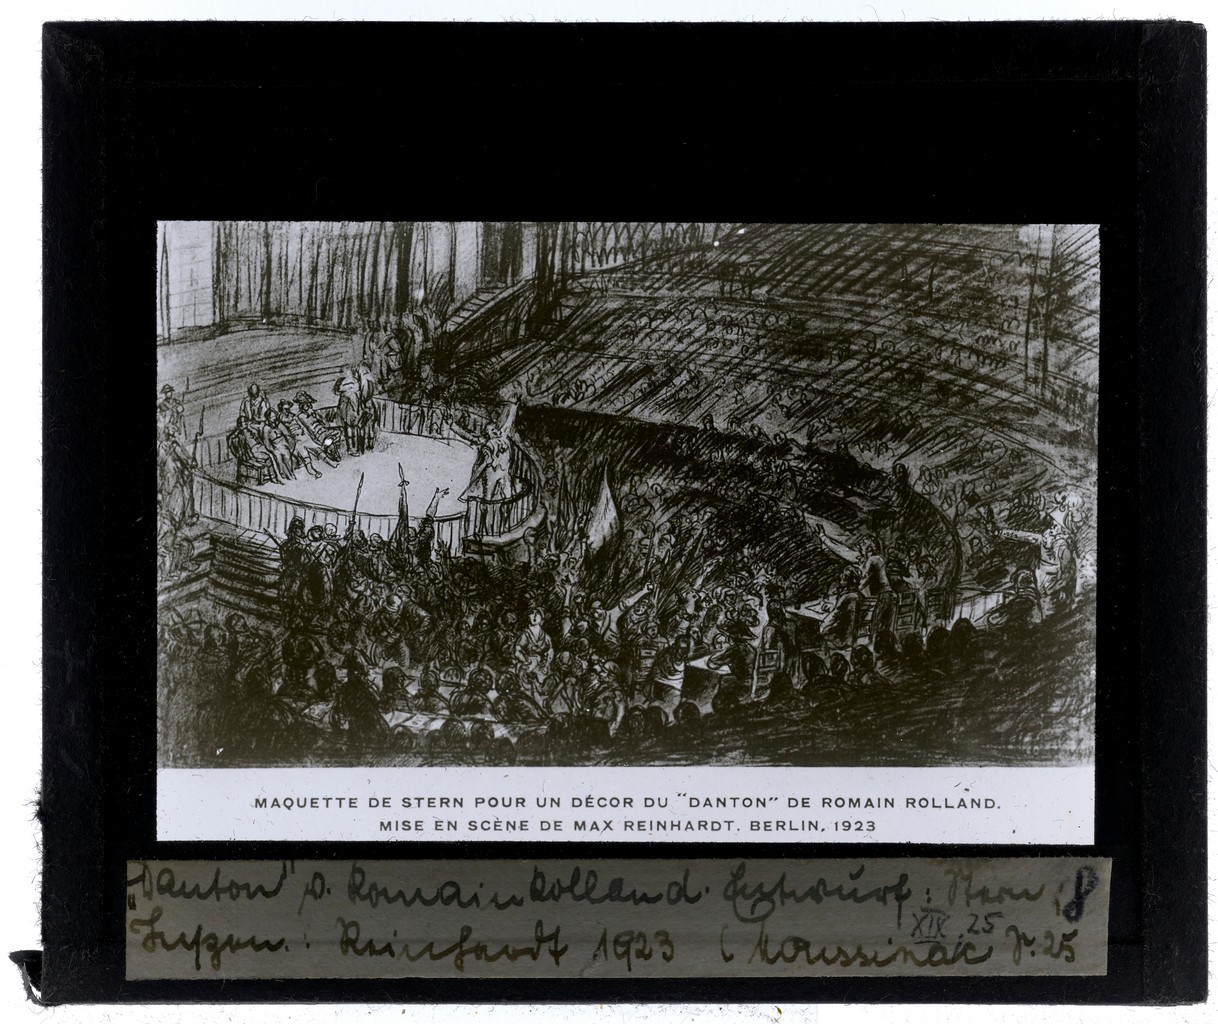 MAQUETTE DE STERN POUR UN DÉCOR DU "DANTON" DE ROMAIN ROLLAND.
MISE EN SCÈNE DE MAX REINHARDT. BERLIN, 1923
„Danton" v. Romain Rolland. Entwurf: Stern, 8
XIX.25
Inszen.: Reinhardt 1923 (Moussinac S. 25